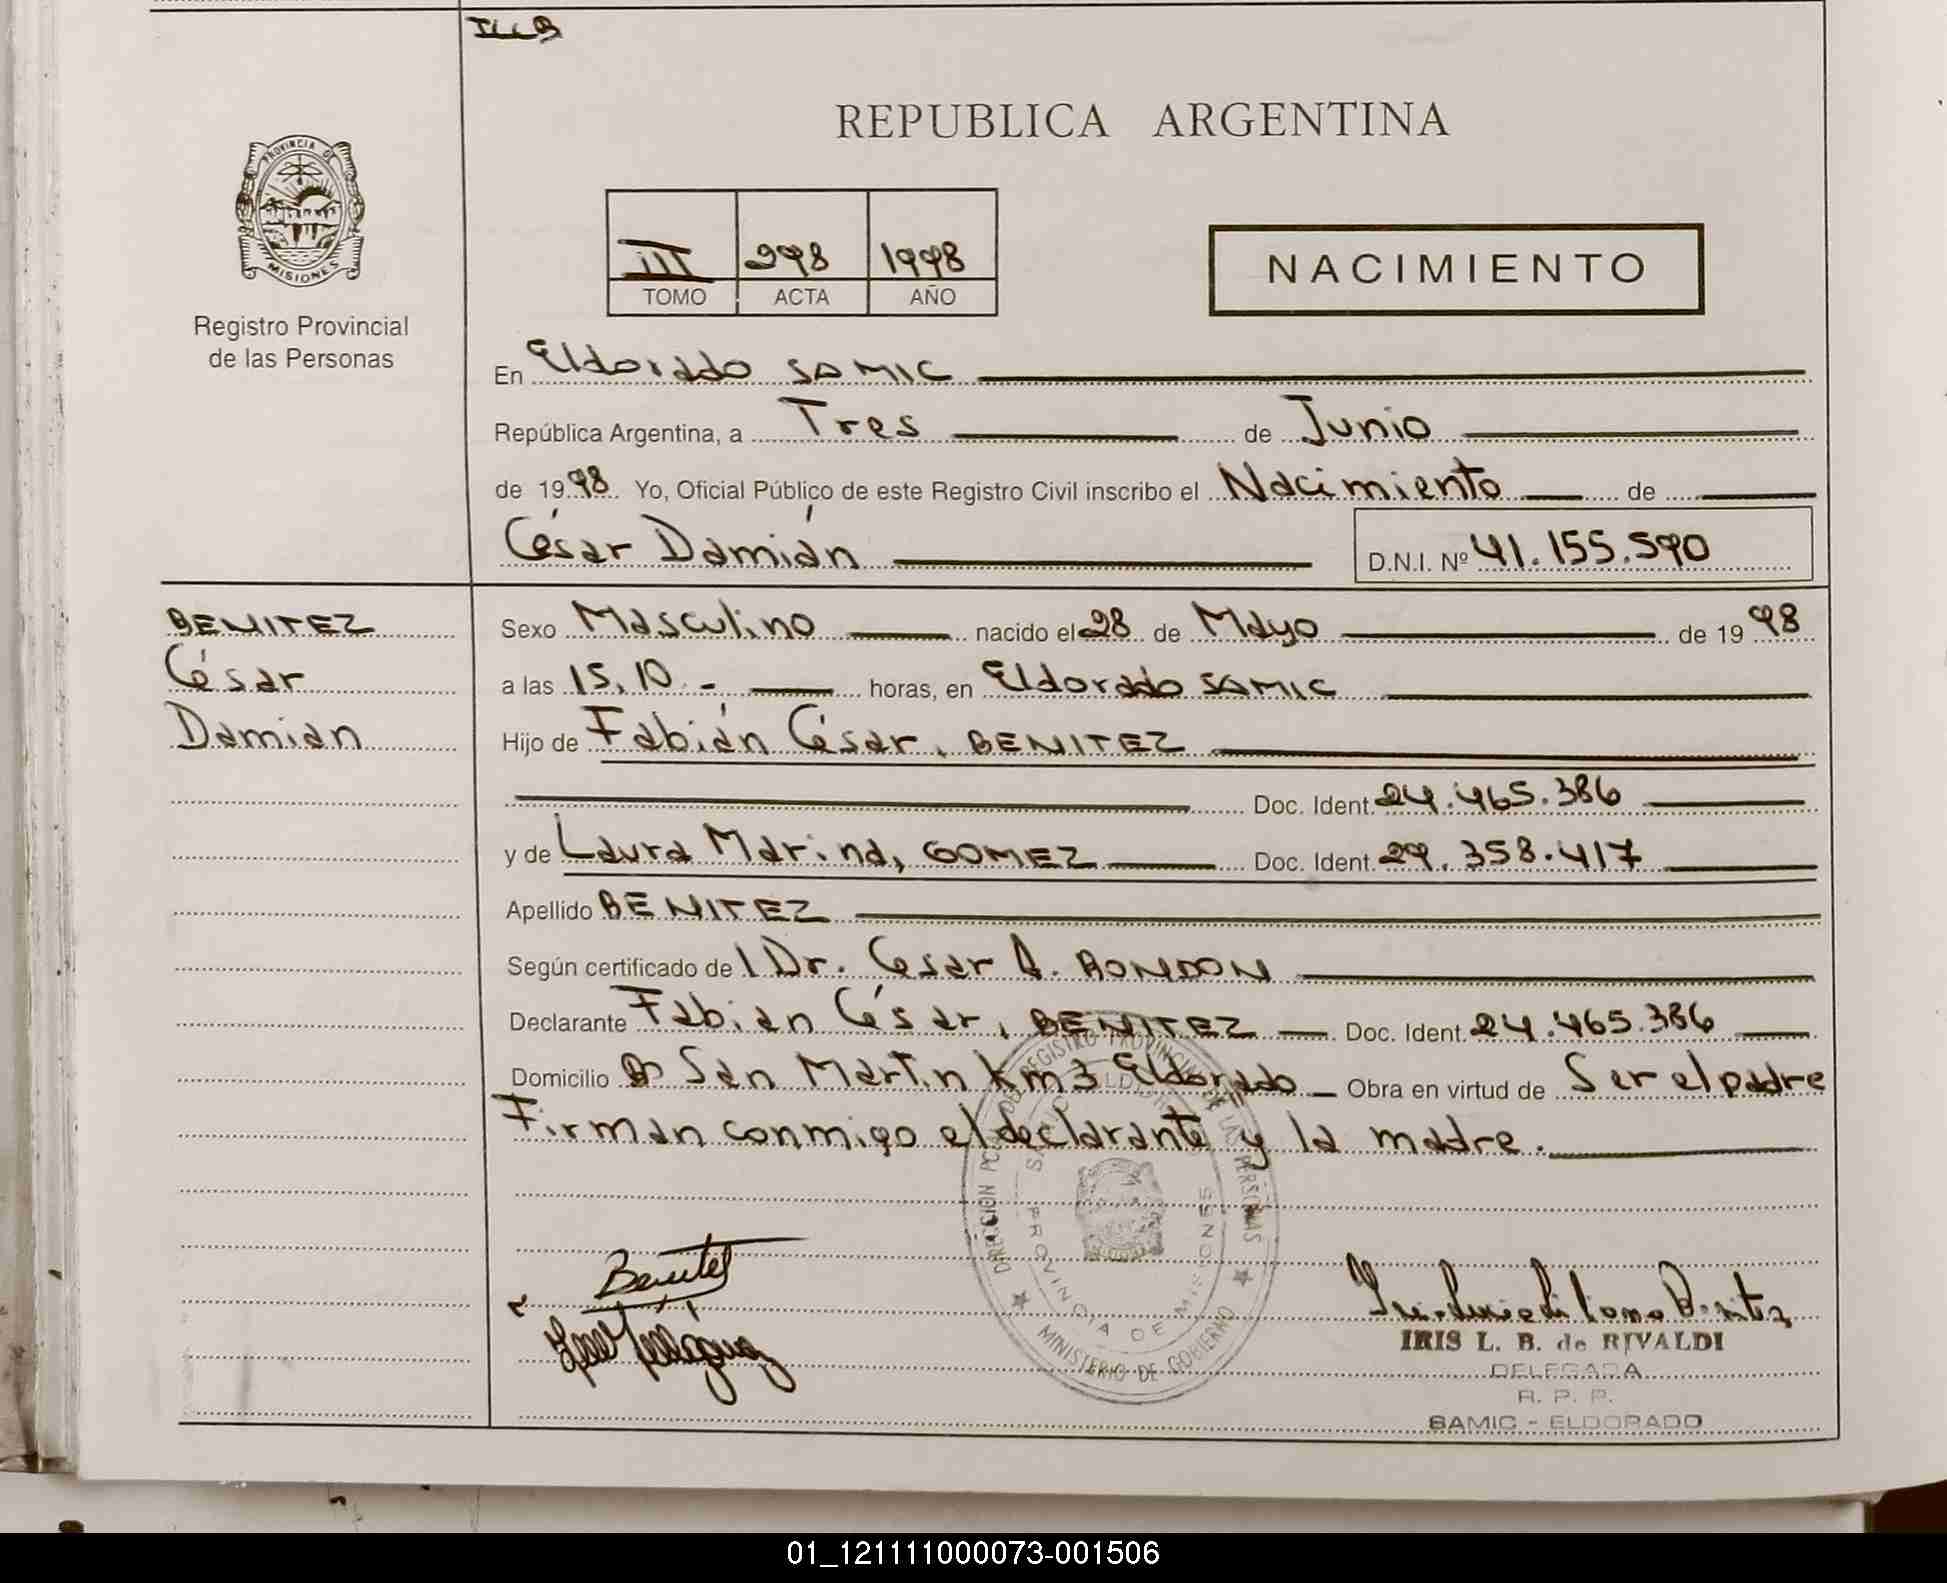 REPUBLICA ARGENTINA
PROVINCIA DE
MISIONES
Registro Provincial
de las Personas
III 298 1998
TOMO ACTA AÑO
NACIMIENTO
En Eldorado SAMIC
República Argentina, a Tres de Junio
de 1998 Yo, Oficial Público de este Registro Civil inscribo el Nacimiento de
César Damián D.N.I. Nº 41.155.590
BENITEZ
César
Damian
Sexo Masculino nacido el 28 de Mayo de 1998
a las 15,10.- horas, en Eldorado SAMIC
Hijo de Fabián César, BENITEZ
Doc. Ident. 24.465.386
y de Laura Marina, GOMEZ Doc. Ident. 29.358.417
Apellido BENITEZ
Según certificado de l Dr. Cesar A. RONDON
Declarante Fabian César, BENITEZ Doc. Ident. 24.465.386
Domicilio Bº San Martin Km 3 Eldorado Obra en virtud de Ser el padre
Firman conmigo el declarante y la madre.
DIRECCION PCIAL. DEL REGISTRO PROVINCIAL DE LAS PERSONAS
PROVINCIA DE MISIONES
MINISTERIO DE GOBIERNO
Benitez
IRIS L. B. de RIVALDI
DELEGADA
R. P. P.
SAMIC - ELDORADO
01_121111000073-001506